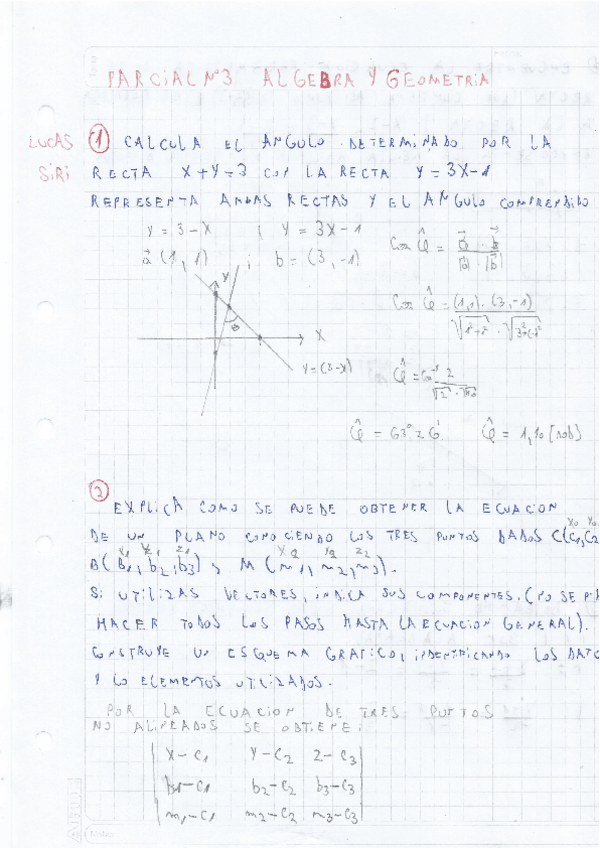 PARCIAL Nº3 ALGEBRA Y GEOMETRIA
LUCAS SIRI
1 CALCULA EL ANGULO DETERMINADO POR LA
RECTA X+Y=3 CON LA RECTA Y=3X-1
REPRESENTA AMBAS RECTAS Y EL ANGULO COMPRENDIDO
y = 3-x ; y = 3x-1
a⃗ (1,1) ; b = (3,-1)
Cos φ̂ = a⃗ · b⃗ / |a⃗| · |b⃗|
Y
X
Y=(3-x)
Cos φ̂ = (1,1) · (3,-1) / √1²+1² · √3²+1²
φ̂ = Cos⁻¹ 2 / √2 · √10
φ̂ = 63º 26' φ̂ = 1,10 [rad]
2
EXPLICA COMO SE PUEDE OBTENER LA ECUACION
DE UN PLANO CONOCIENDO LOS TRES PUNTOS DADOS C(C1,C2
X0 Y0
Y1 Z1
X2 Y2 Z2
B(b1, b2, b3) y M(m1, m2, m3).
SI UTILIZAS VECTORES, INDICA SUS COMPONENTES. (NO SE PI
HACER TODOS LOS PASOS HASTA LA ECUACION GENERAL).
CONSTRUYE UN ESQUEMA GRAFICO, INDENTIFICANDO LOS DATO
Y LO ELEMENTOS UTILIZADOS.
POR LA ECUACION DE TRES PUNTOS
NO ALINEADOS SE OBTIENE:
X-C1 Y-C2 Z-C3
b1-C1 b2-C2 b3-C3
m1-C1 m2-C2 m3-C3